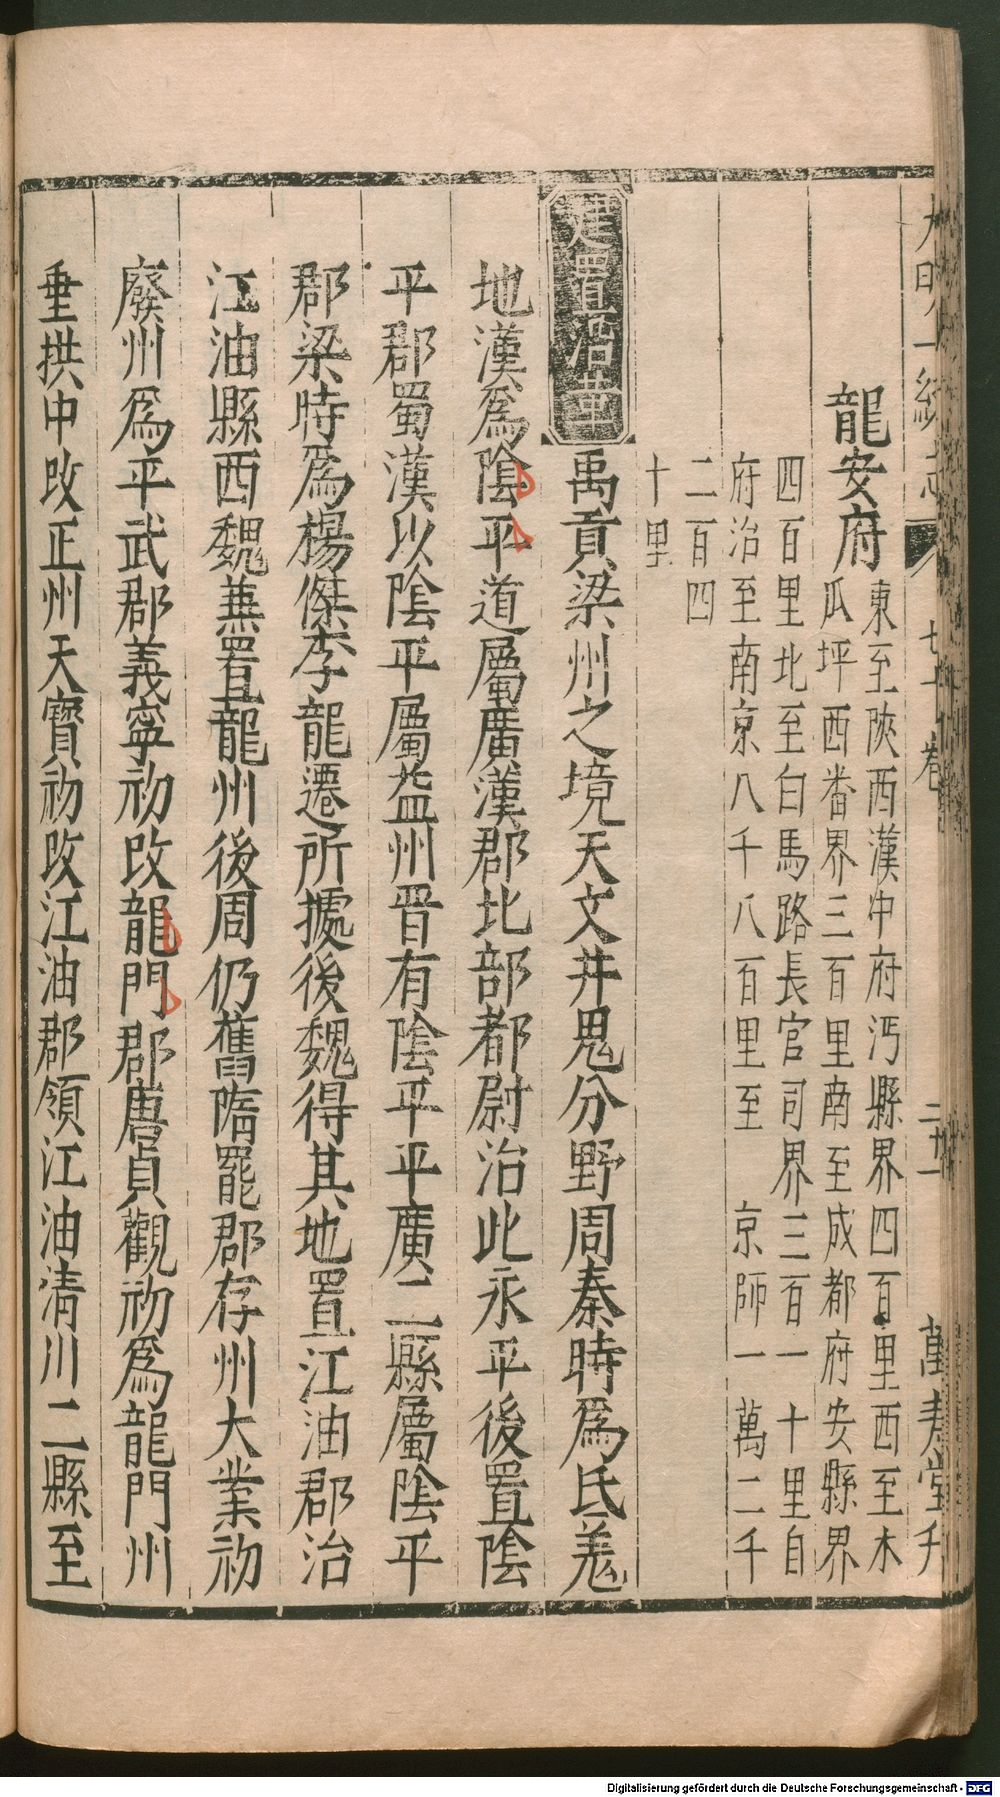 大明一統志 七十卷 萬壽堂刊
龍安府
東至陝西漢中府沔縣界四百里西至木
瓜坪西番界三百里南至成都府安縣界
四百里北至白馬路長官司界三百一十里自
府治至南京八千八百里至 京師一萬二千
二百四
十里
建置沿革
禹貢梁州之境天文井鬼分野周秦時爲氐羗
地漢爲陰平道屬廣漢郡北部都尉治此永平後置陰
平郡蜀漢以陰平屬益州晋有陰平平廣二縣屬陰平
郡梁時爲楊傑李龍遷所據後魏得其地置江油郡治
江油縣西魏兼置龍州後周仍舊隋罷郡存州大業初
廢州爲平武郡義寧初改龍門郡唐貞觀初爲龍門州
垂拱中改正州天寶初改江油郡領江油清川二縣至
Digitalisierung gefördert durch die Deutsche Forschungsgemeinschaft - DFG